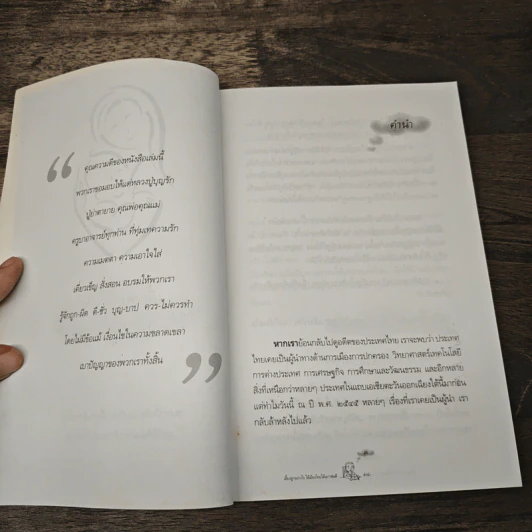 “
คุณความดีของหนังสือเล่มนี้
พวกเราขอมอบให้แด่หลวงปู่บุญรัก
ปู่ย่าตายาย คุณพ่อคุณแม่
ครูบาอาจารย์ทุกท่าน ที่ทุ่มเทความรัก
ความเมตตา ความเอาใจใส่
เคี่ยวเข็ญ สั่งสอน อบรมให้พวกเรา
รู้จักถูก-ผิด ดี-ชั่ว บุญ-บาป ควร-ไม่ควรทำ
โดยไม่มีข้อแม้ เงื่อนไขในความขลาดเขลา
เบาปัญญาของพวกเราทั้งสิ้น
”
คำนำ
หากเราย้อนกลับไปดูอดีตของประเทศไทย เราจะพบว่า ประเทศ
ไทยเคยเป็นผู้นำทางด้านการเมืองการปกครอง วิทยาศาสตร์เทคโนโลยี
การต่างประเทศ การเศรษฐกิจ การศึกษาและวัฒนธรรม และอีกหลาย
สิ่งที่เหนือกว่าหลายๆ ประเทศในแถบเอเชียตะวันออกเฉียงใต้นี้มาก่อน
แต่ทำไมวันนี้ ณ ปี พ.ศ. ๒๕๔๕ หลายๆ เรื่องที่เราเคยเป็นผู้นำ เรา
กลับล้าหลังไปแล้ว